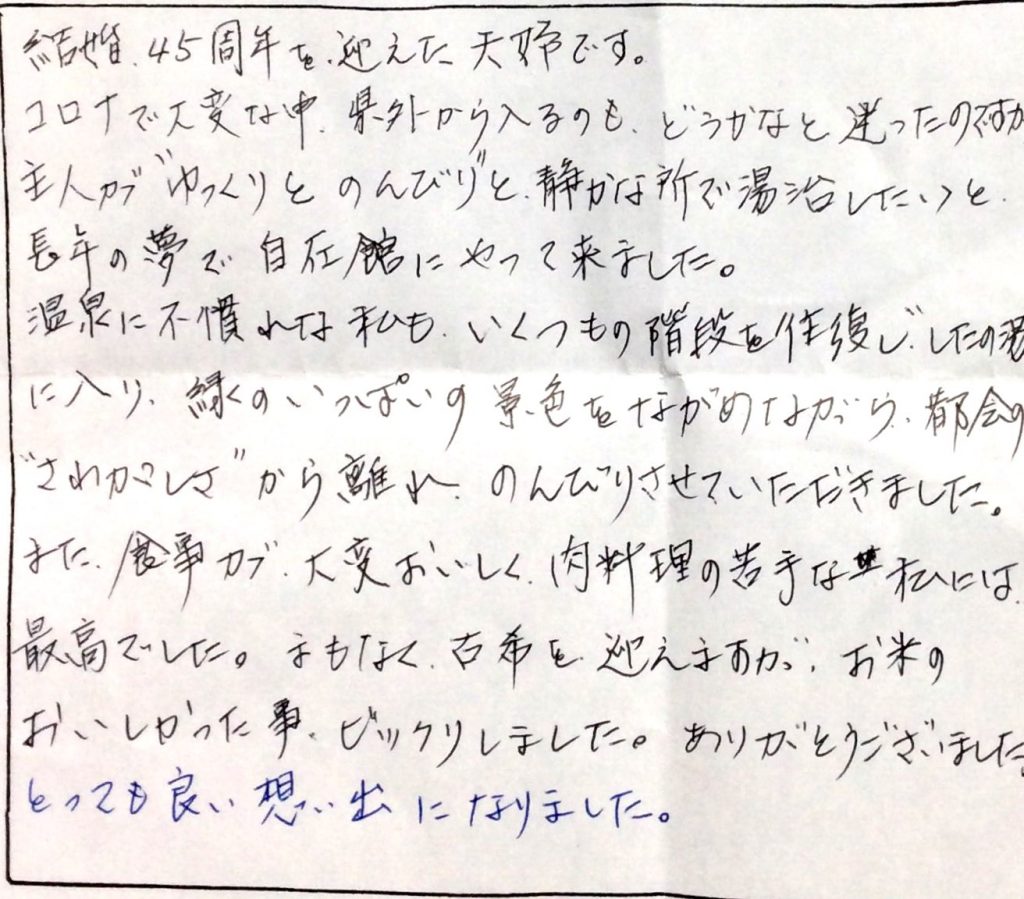 結婚、45周年を、迎えた天野です。
コロナで大変な中、県外から入るのも、どうかなと迷ったのですが
主人が"ゆっくりと のんびりと、静かな所で湯治したい"と、
長年の夢で 自在館に やって来ました。
温泉に不慣れな私も、いくつもの階段を往復し、したの湯
に入り、緑くのいっぱいの 景色をながめながら、都会の
"さわがしさ"から離れ、のんびりさせていただきました。
また、食事が、大変おいしく、肉料理の苦手な私には、
最高でした。まもなく、古希を、迎えますが、お米の
おいしかった事、ビックリしました。ありがとうございました。
とっても良い想い出になりました。